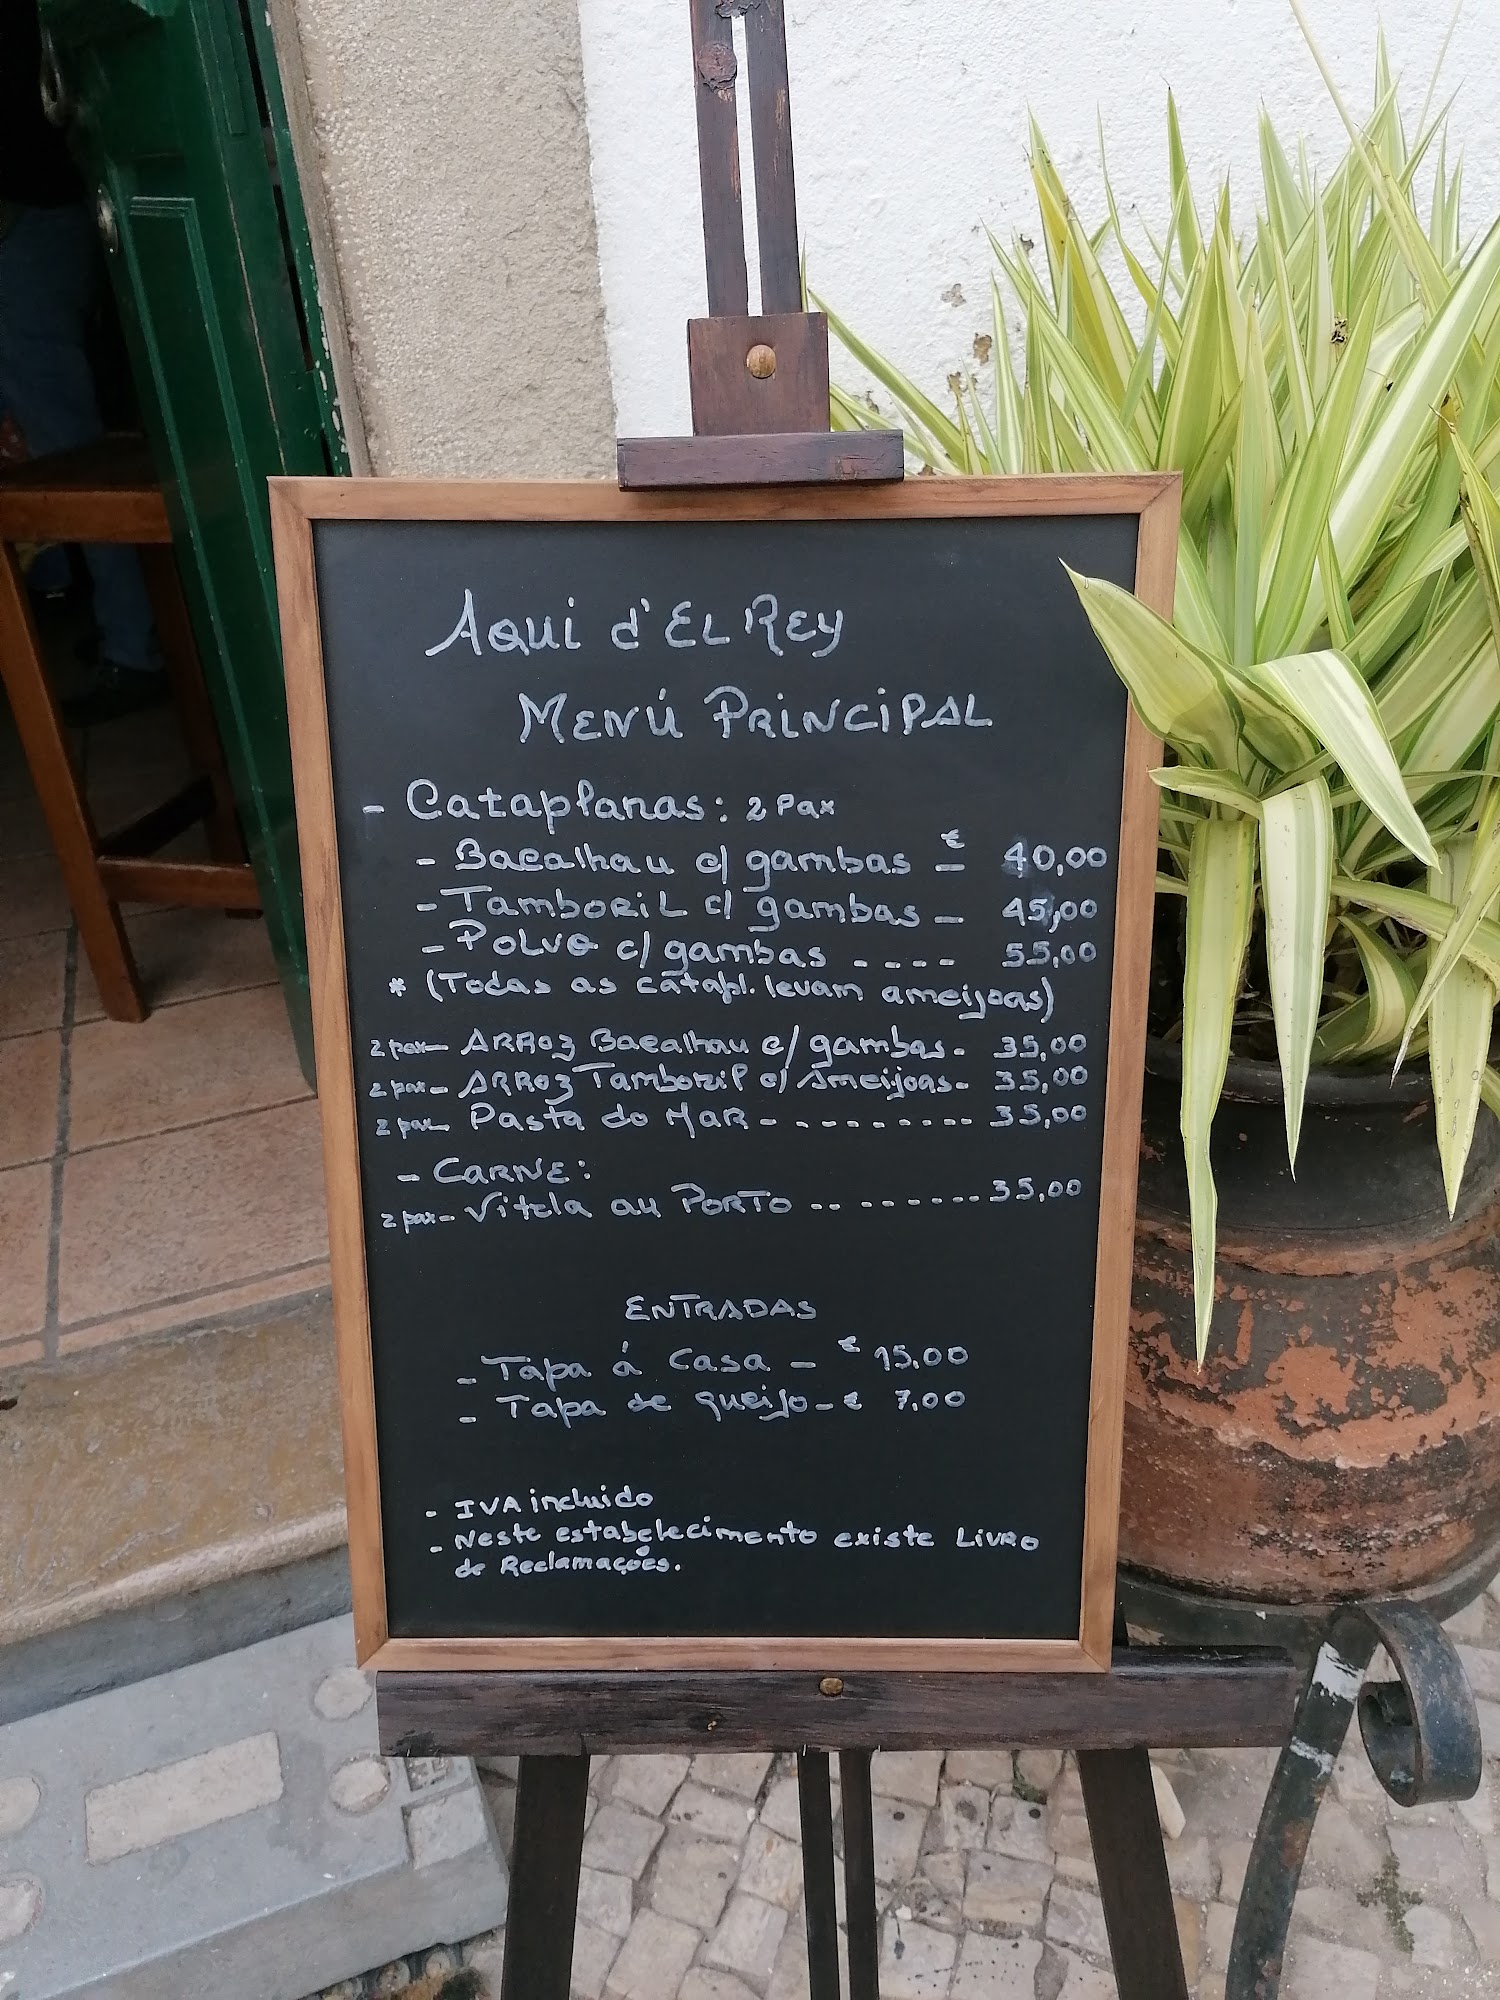 Aqui d'El Rey
Menú Principal
- Cataplanas: 2 Pax
- Bacalhau c/ gambas € - 40,00
- Tamboril c/ gambas - 45,00
- Polvo c/ gambas .... 55,00
* (Todas as catapl. levam ameijoas)
2 pax - Arroz Bacalhau c/ gambas - 35,00
2 pax - Arroz Tamboril c/ Ameijoas - 35,00
2 pax - Pasta do Mar - ......... 35,00
- Carne:
2 pax - Vitela au Porto ......... 35,00
Entradas
- Tapa á Casa - € 15,00
- Tapa de queijo - € 7,00
- IVA incluido
- Neste estabelecimento existe Livro
de Reclamações.